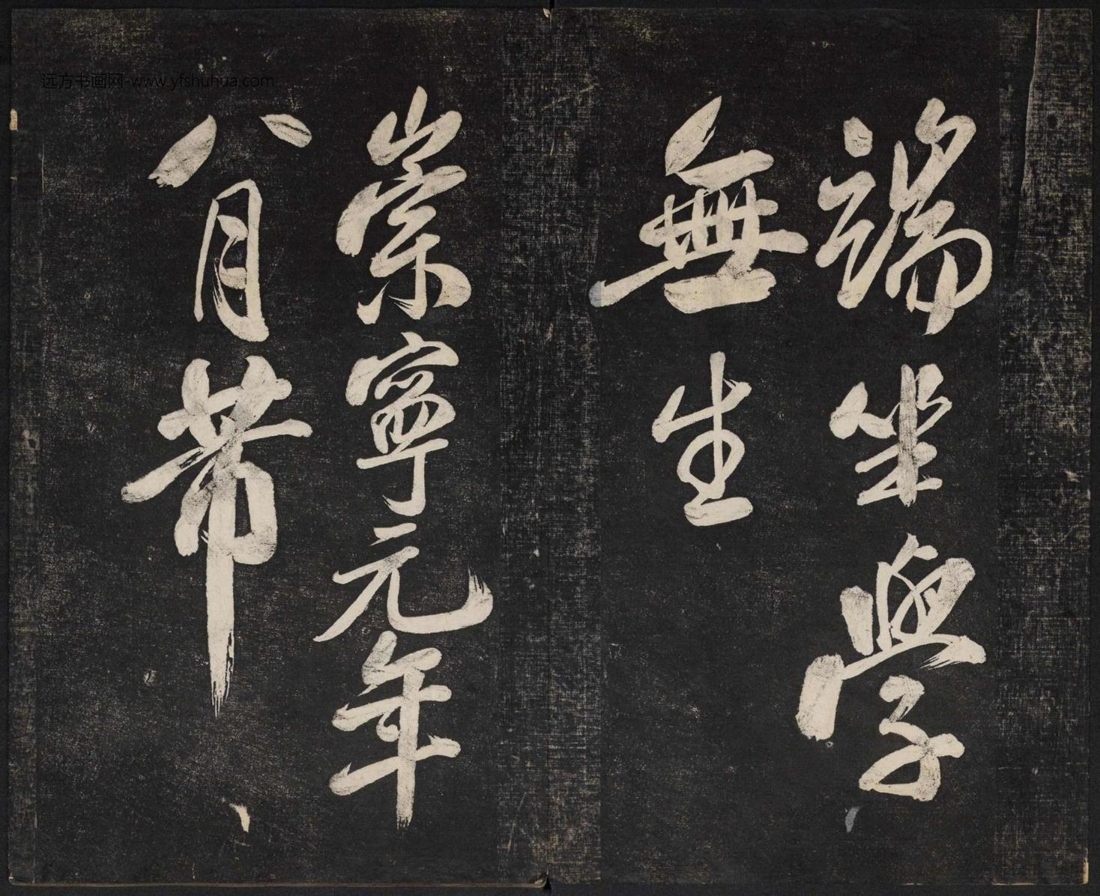 端坐學
無生
崇寧元年
八月芾
远方书画网-www.yfshuhua.com